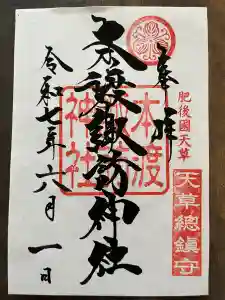 奉拝
肥後國天草
天草總鎮守
本渡諏訪神社
本渡
諏訪
神社
令和七年六月一日